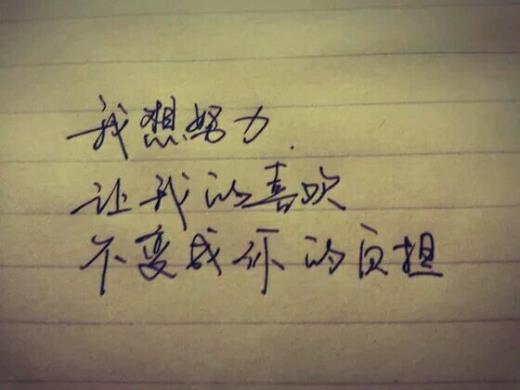 我想努力
让我的喜欢
不变成你的负担